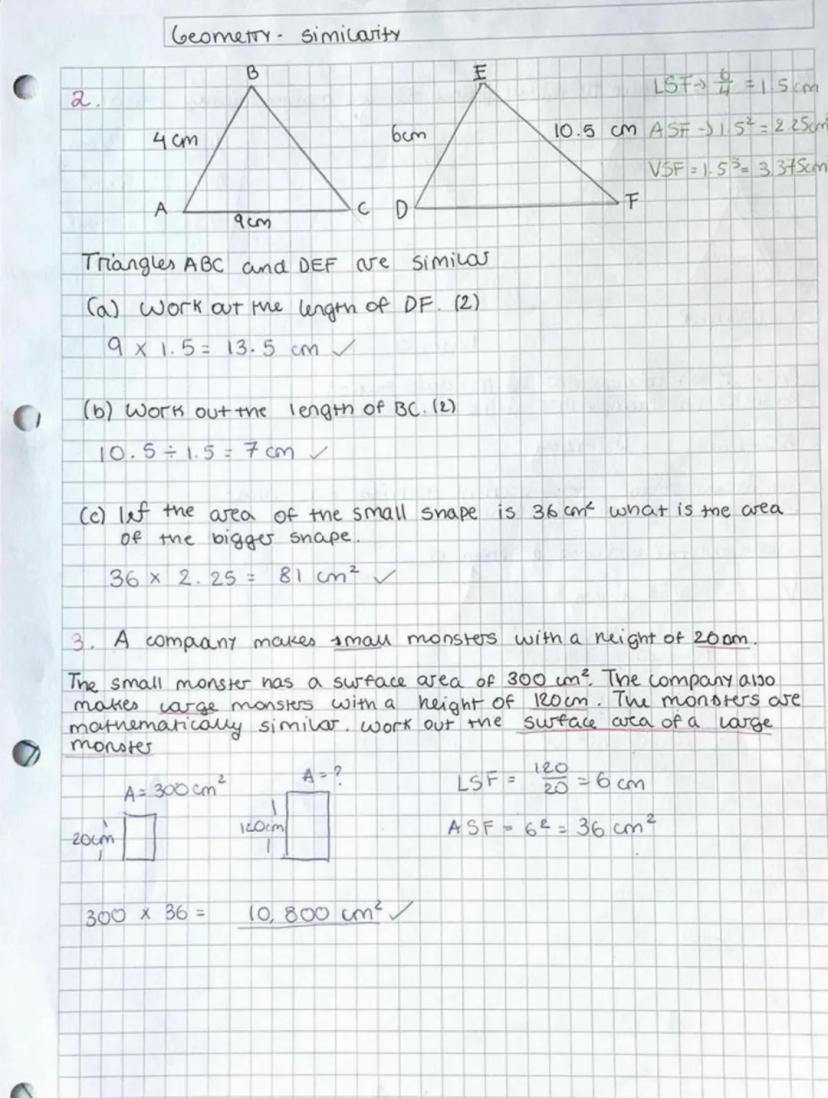 Geometry - similarity
2.
B
4 cm
A
9cm
C
E
6cm
10.5 cm
D
F
LSF → 6/4 = 1.5 cm
ASF → 1.5² = 2.25cm
VSF = 1.5³ = 3.375cm
Triangles ABC and DEF are similar
(a) Work out the length of DF. (2)
9 × 1.5 = 13.5 cm ✓
(b) Work out the length of BC. (2)
10.5 ÷ 1.5 = 7 cm ✓
(c) If the area of the small shape is 36 cm² what is the area
of the bigger shape.
36 × 2.25 = 81 cm² ✓
3. A company makes small monsters with a height of 20cm.
The small monster has a surface area of 300 cm². The company also
makes large monsters with a height of 120cm. The monsters are
mathematically similar. Work out the surface area of a large
monster
A = 300 cm²
20cm
A = ?
120cm
LSF = 120/20 = 6 cm
ASF = 6² = 36 cm²
300 × 36 = 10,800 cm² ✓